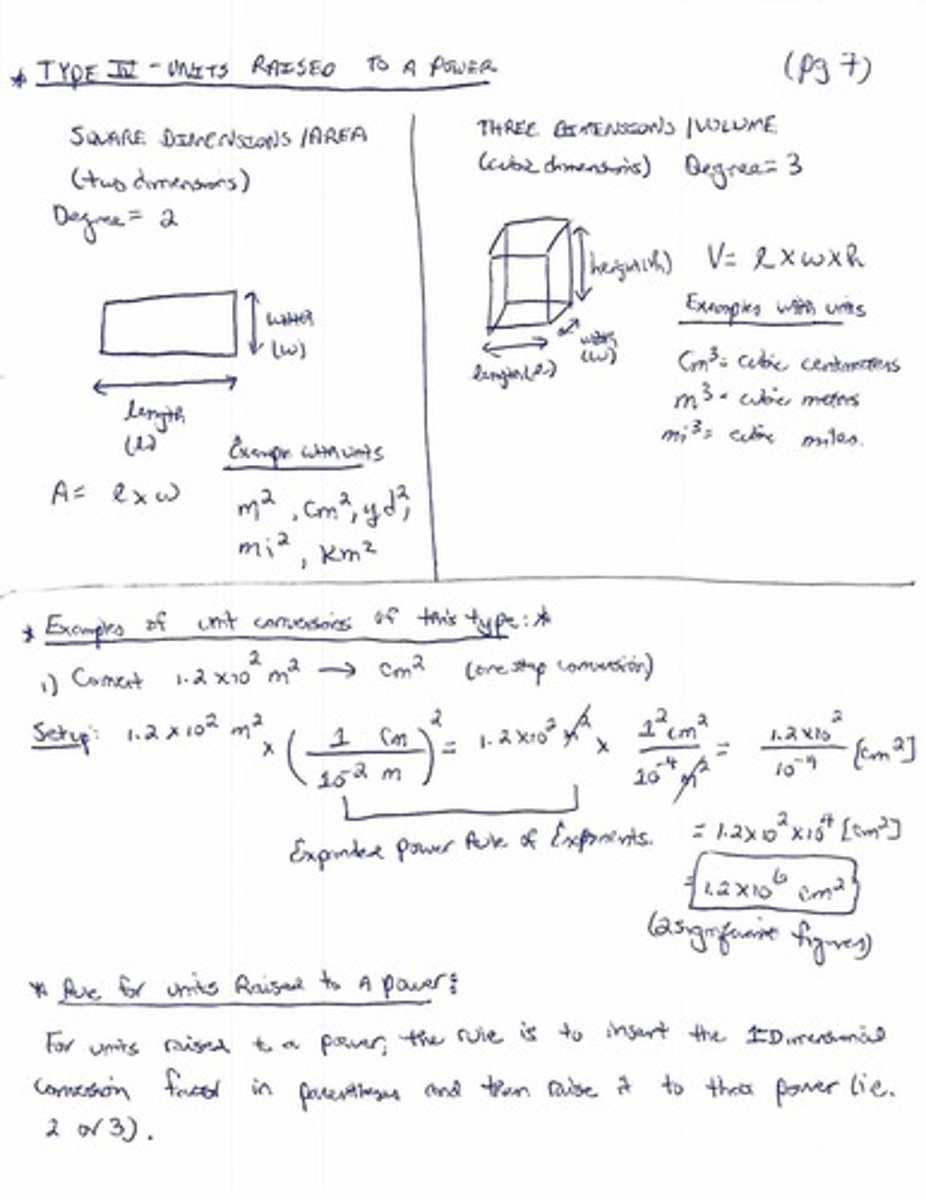 * TYPE IV - UNITS RAISED TO A POWER (pg 7)
SQUARE DIMENSIONS / AREA
(two dimensions)
Degree = 2
width
(w)
length
(l)
Example with units
A = l x w
m², cm², yd²,
mi², km²
THREE DIMENSIONS / VOLUME
(cubic dimensions) Degree = 3
height(h)
V = l x w x h
width
(w)
length(l)
Examples with units
cm³ = cubic centimeters
m³ = cubic meters
mi³ = cubic miles.
* Examples of unit conversions of this type: *
1) Convert 1.2 x 10² m² → cm² (one step conversion)
Setup: 1.2 x 10² m² x (1 cm / 10⁻² m)² = 1.2 x 10² m² x 1² cm² / 10⁻⁴ m² = 1.2 x 10² / 10⁻⁴ [cm²]
Expanded Power Rule of Exponents.
= 1.2 x 10² x 10⁴ [cm²]
= 1.2 x 10⁶ cm²
(2 significant figures)
* Rule for units Raised to A power:
For units raised to a power, the rule is to insert the 1 Dimensional
conversion factor in parentheses and then raise it to that power (ie.
2 or 3).